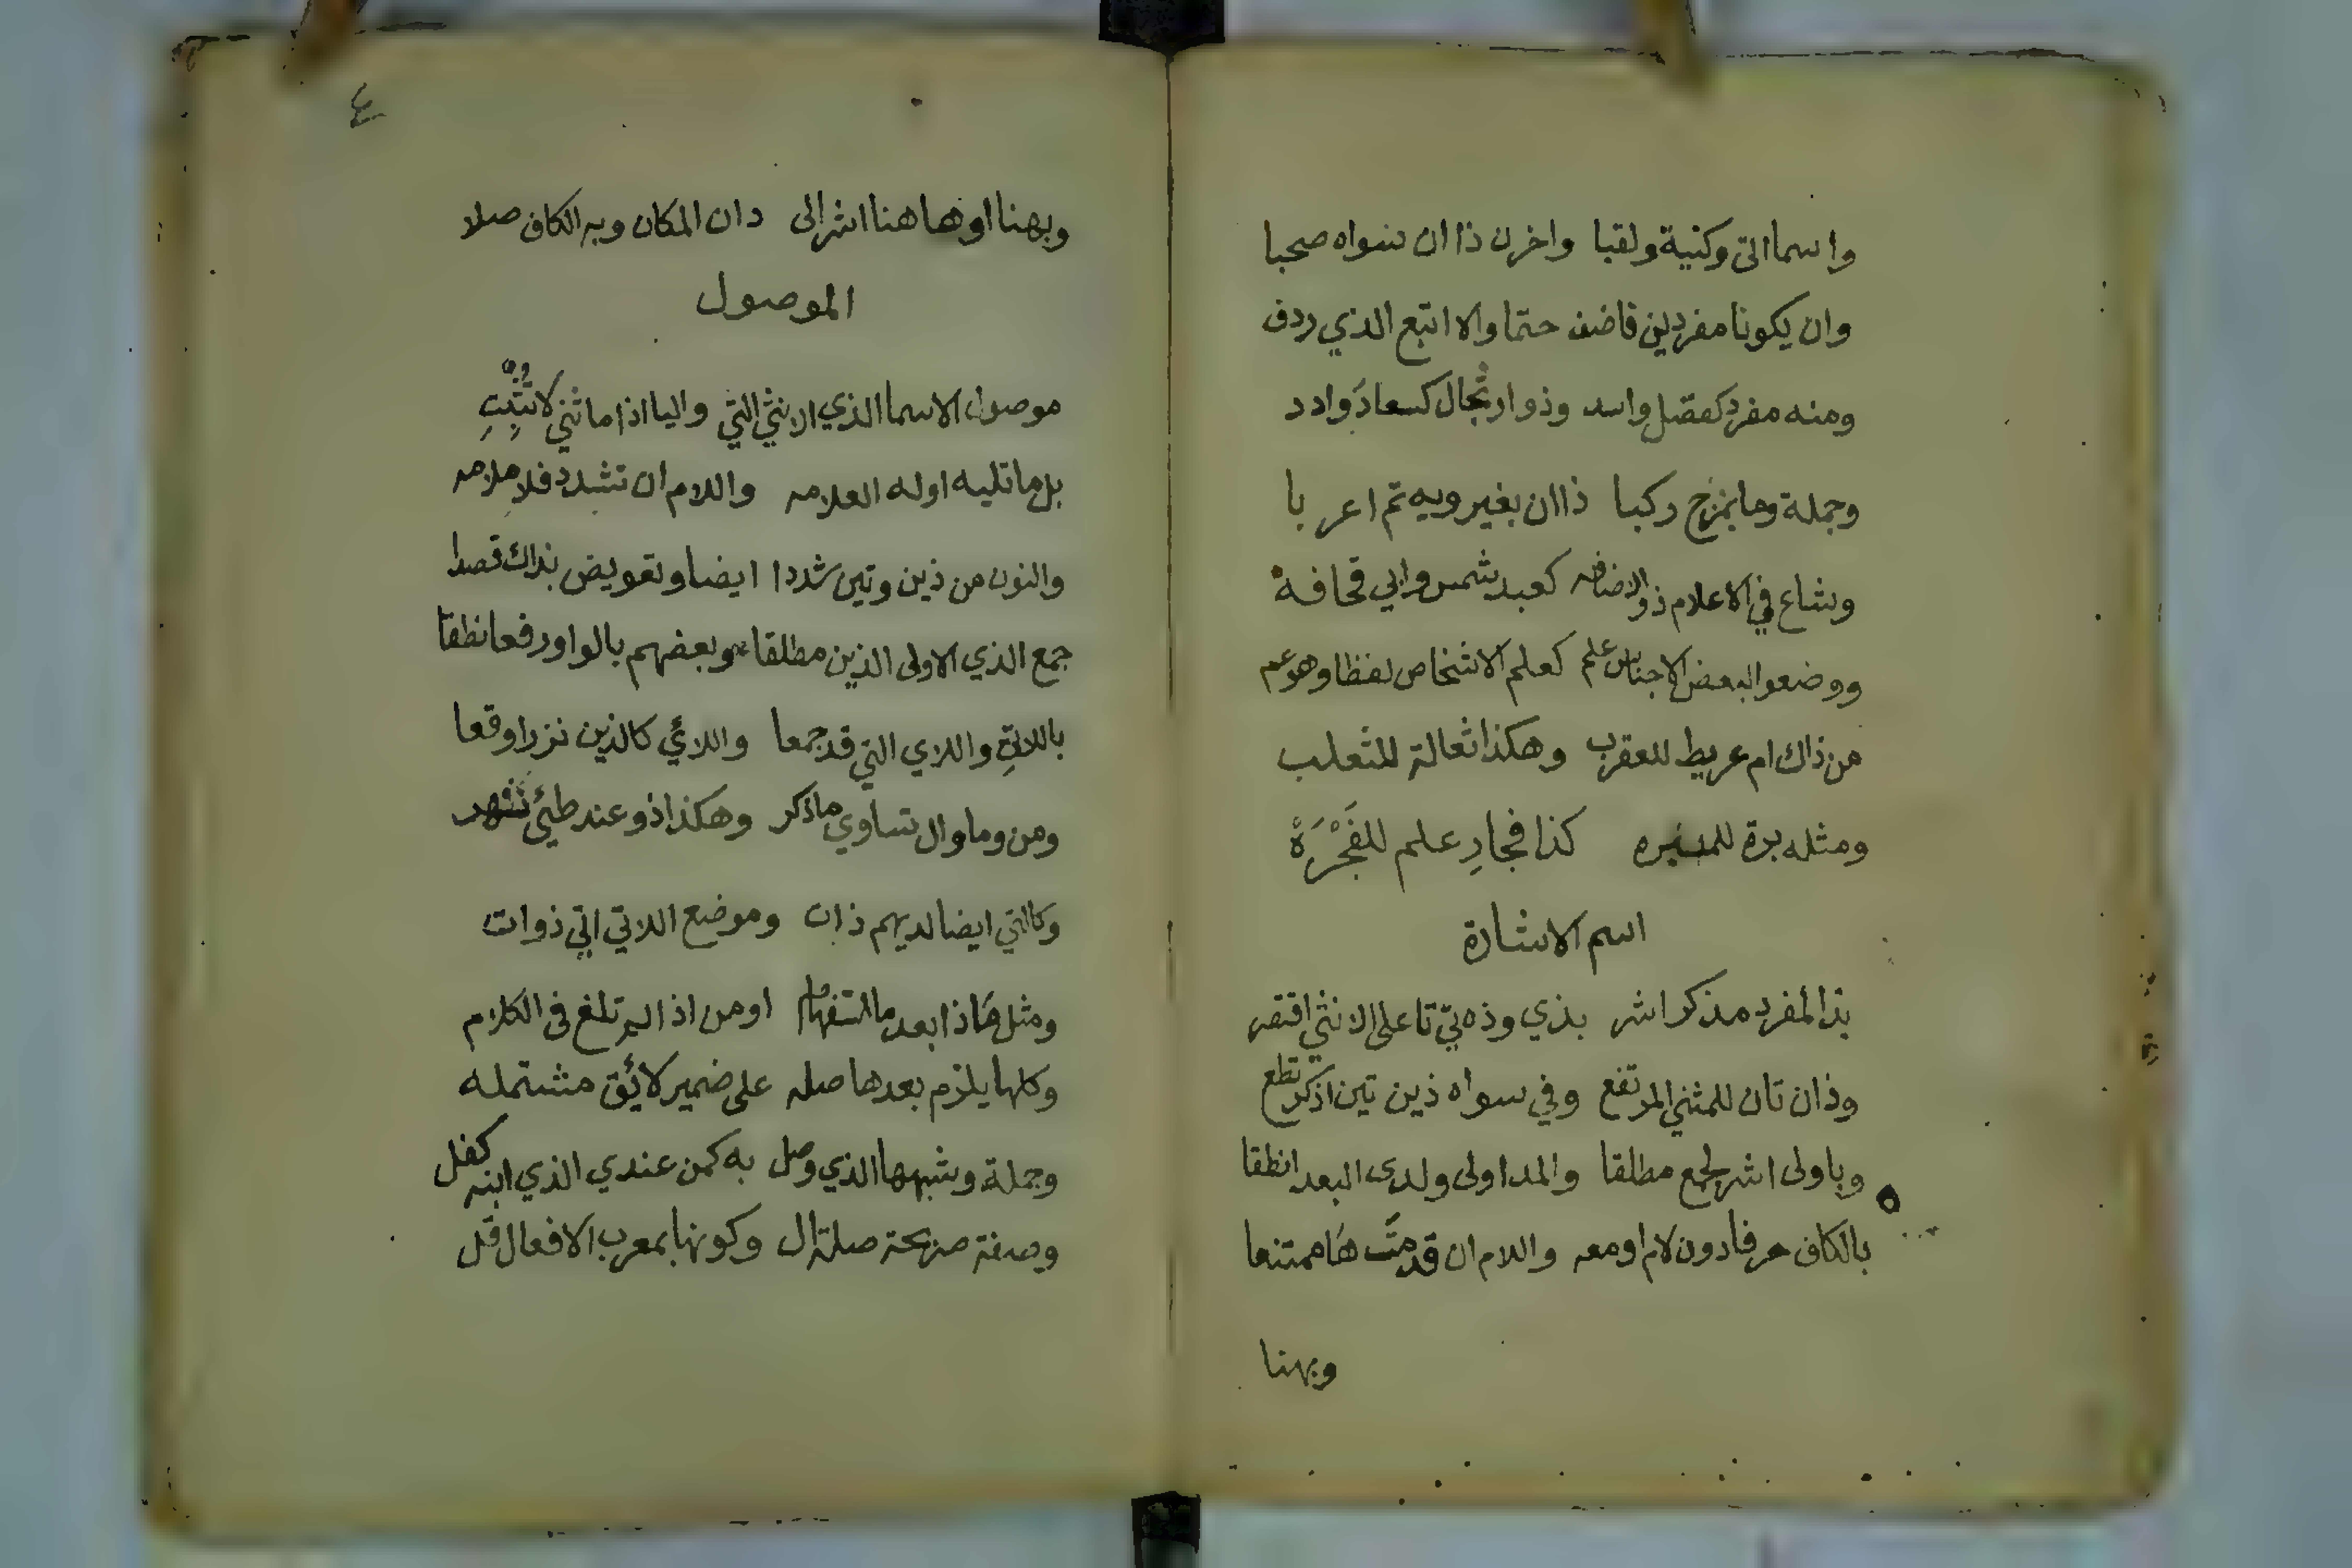 واسما اتى وكنية ولقبا واخرن ذا ان سواه صحبا
وان يكونا مفردين فاضف حتما والا اتبع الذي ردف
ومنه مفرد كفضل واسد وذو ارتجال كسعاد وادد
وجملة وما بمزج ركبا ذا ان بغير ويه تم اعربا
وشاع في الاعلام ذو الاضافه كعبد شمس وابي قحافة
ووضعوا لبعض الاجناس علم كعلم الاشخاص لفظا وهو عم
من ذاك ام عريط للعقرب وهكذا ثعالة للثعلب
ومثله برة للمبره كذا فجارِ علم للفَجْرَةْ
اسم الاشارة
بذا لمفرد مذكر اشر بذي وذه تي تا على الانثى اقتصر
وذان تان للمثنى المرتفع وفي سواه ذين تين اذكر تطع
وباولى اشر لجمع مطلقا والمد اولى ولدى البعد انطقا
بالكاف حرفا دون لام او معه واللام ان قدمت هَا ممتنعا
وبهنا
٤
وبهنا او هاهنا اشر الى دان المكان وبه الكاف صلا
الموصول
موصول الاسما الذي الانثى التي واليا اذا ما ثني لا تُثْبِتِ
بل ما تليه اوله العلامه واللام ان تشدد فلا ملامه
والنون من ذين وتين شددا ايضا وتعويض بذاك قصدا
جمع الذي الاولى الذين مطلقا وبعضهم بالواو رفعا نطقا
باللاتِ واللاي التي قد جمعا واللائي كالذين نزرا وقعا
ومن وما وال تساوي ما ذكر وهكذا ذو عند طيئ شهر
وكالتي ايضا لديهم ذات وموضع اللاتي اتي ذوات
ومثل مَا ذا بعد ما استفهام او من اذا لم تلغ في الكلام
وكلها يلزم بعدها صله على ضمير لائق مشتمله
وجملة وشبهها الذي وصل به كمن عندي الذي ابنه كفل
وصفة صريحة صلة ال وكونها بمعرب الافعال قل